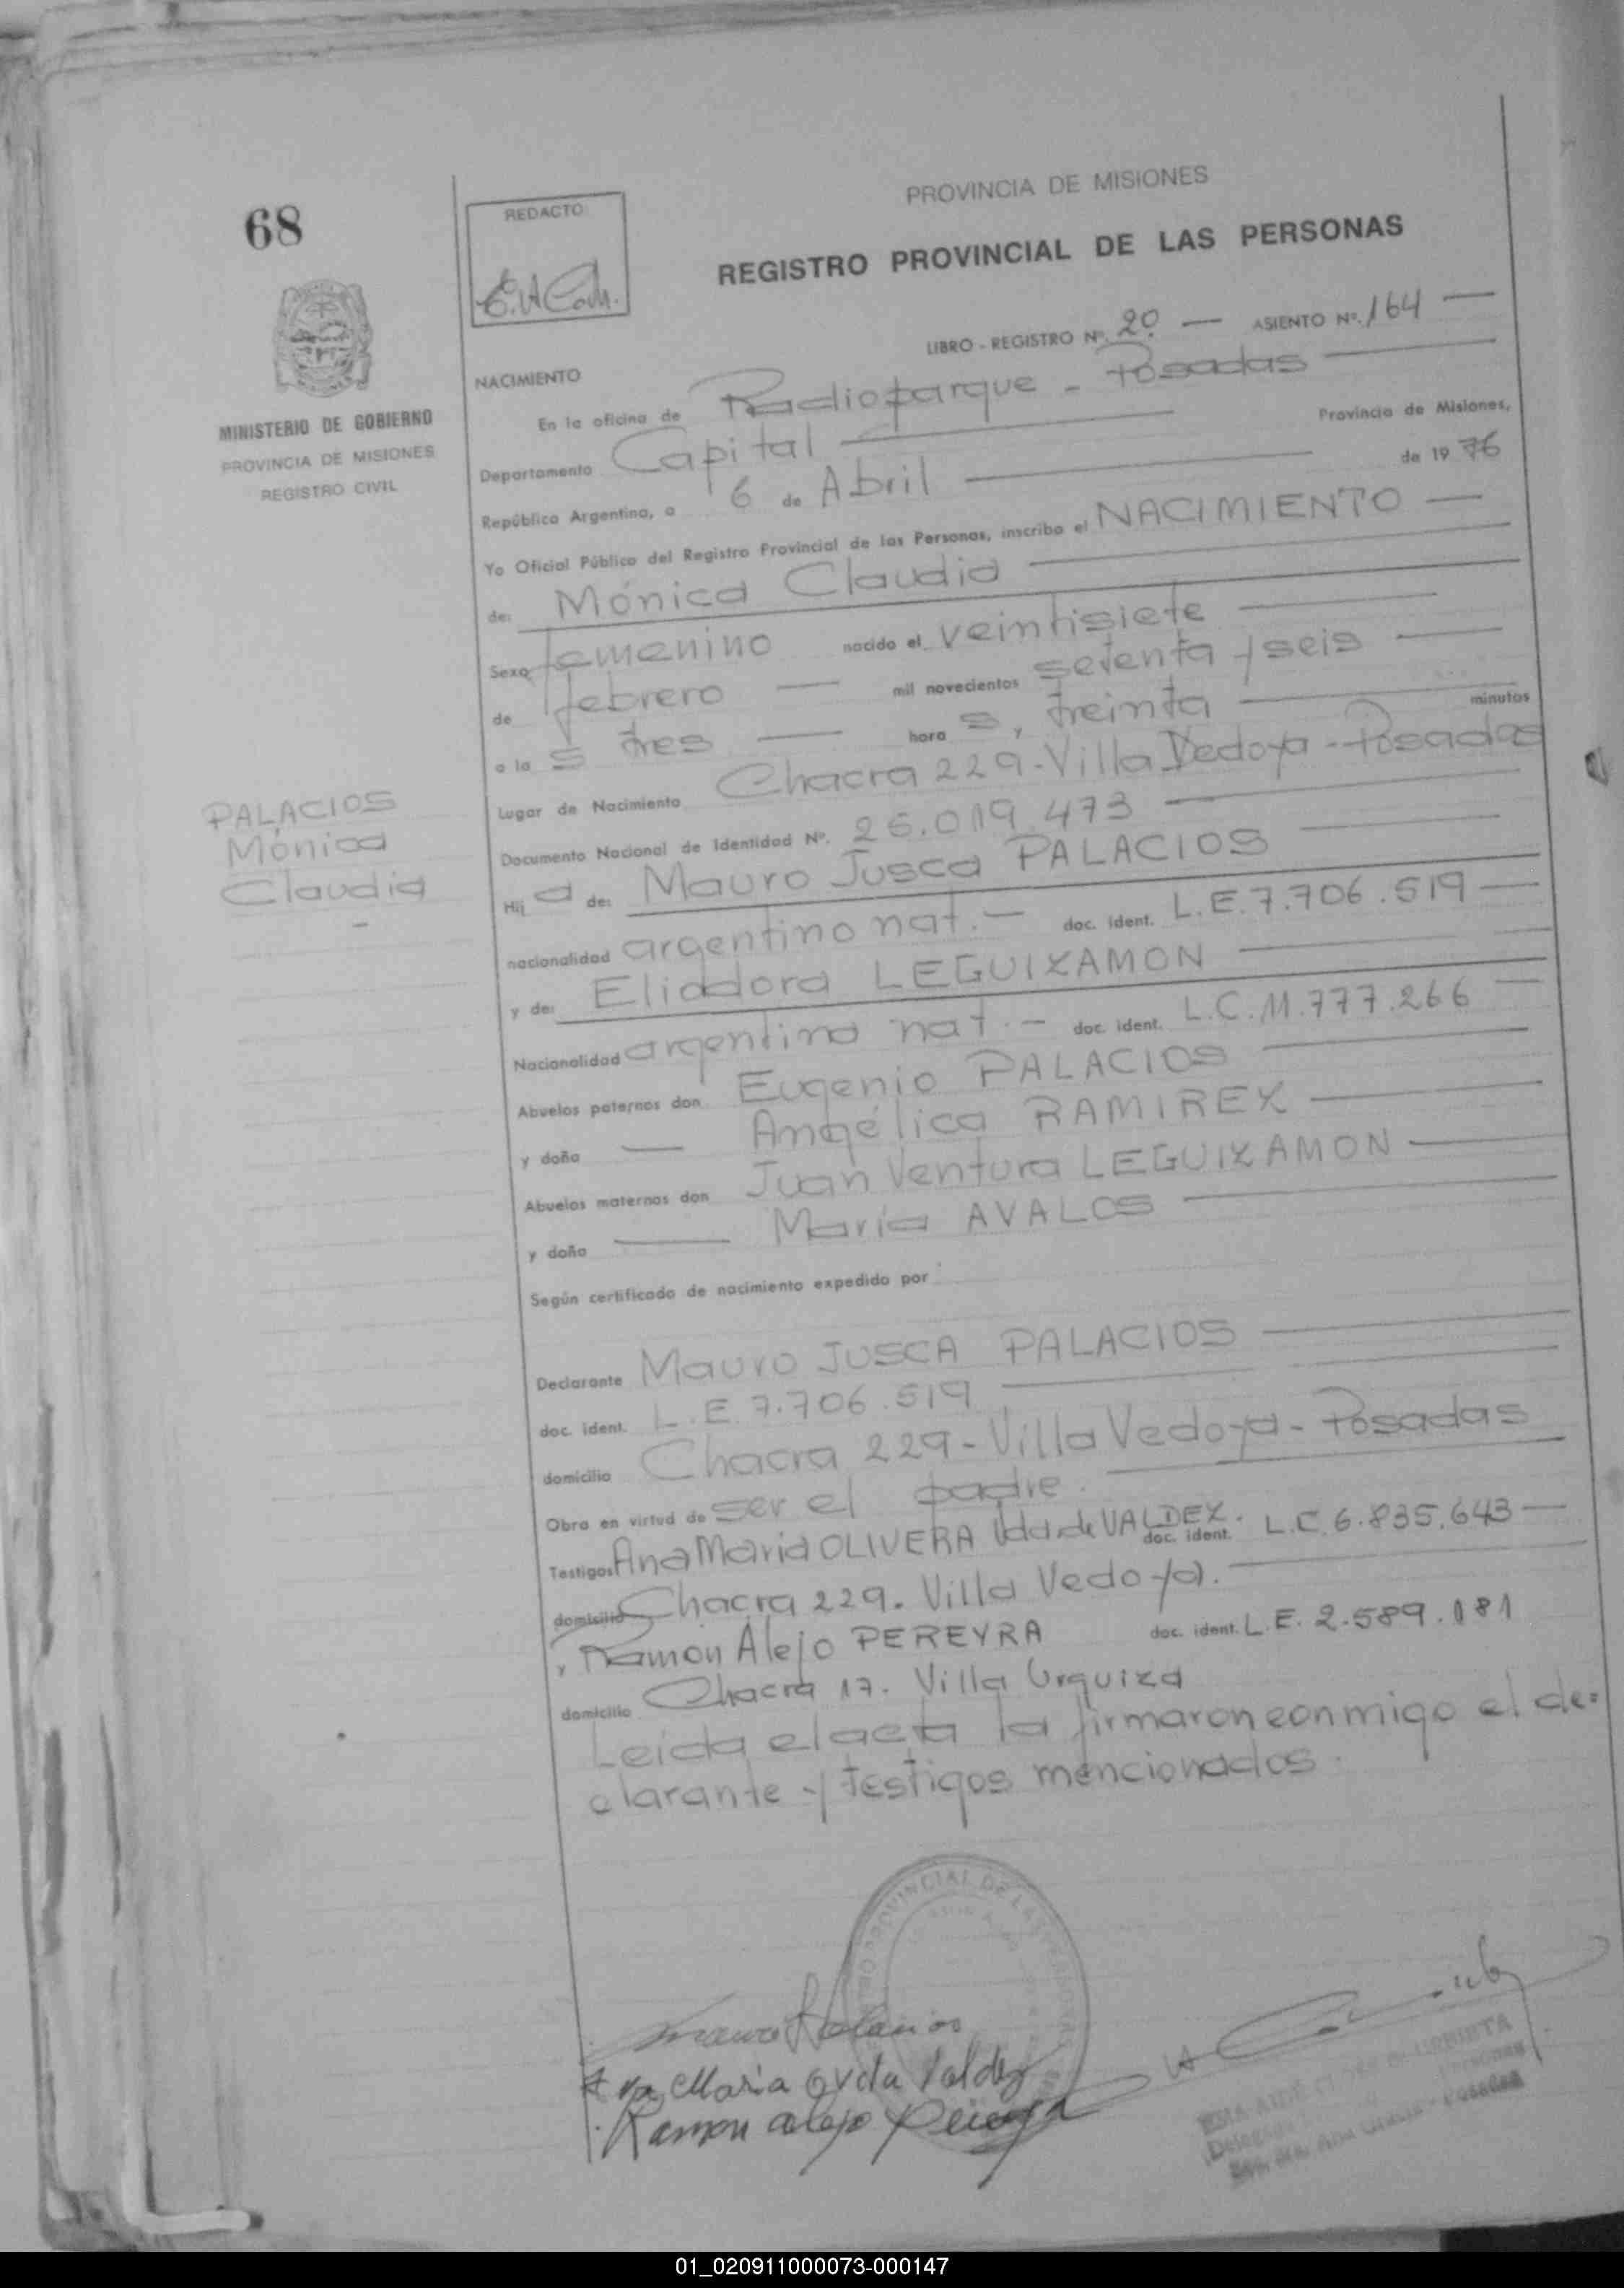 68
REDACTO
PROVINCIA DE MISIONES
REGISTRO PROVINCIAL DE LAS PERSONAS
LIBRO - REGISTRO Nº. 20 — ASIENTO Nº. 164 —
MINISTERIO DE GOBIERNO
PROVINCIA DE MISIONES
REGISTRO CIVIL
NACIMIENTO
En la oficina de Radioparque - Posadas —
Departamento Capital — Provincia de Misiones,
República Argentina, a 6 de Abril — de 1976
Yo Oficial Público del Registro Provincial de las Personas, inscribo el NACIMIENTO —
de: Mónica Claudia —
Sexo femenino nacido el veintisiete —
de febrero — mil novecientos setenta y seis —
a la s tres — hora s y treinta — minutos
Lugar de Nacimiento Chacra 229 - Villa Vedoya - Posadas
PALACIOS
Mónica
Claudia
-
Documento Nacional de Identidad Nº. 25.019.473 —
Hij a de: Mauro Jusca PALACIOS —
nacionalidad argentino nat. — doc. ident. L.E. 7.706.519 —
y de: Eliodora LEGUIZAMON —
Nacionalidad argentina nat. — doc. ident. L.C. 11.777.266 —
Abuelos paternos don Eugenio PALACIOS —
y doña — Angélica RAMIREZ —
Abuelos maternos don Juan Ventura LEGUIZAMON —
y doña — María AVALOS —
Según certificado de nacimiento expedido por
Declarante Mauro JUSCA PALACIOS —
doc. ident. L.E. 7.706.519 —
domicilio Chacra 229 - Villa Vedoya - Posadas
Obra en virtud de ser el padre. —
Testigos Ana Maria OLIVERA Vda. de VALDEZ. doc. ident. L.C. 6.835.643 —
domicilio Chacra 229. Villa Vedoya. —
y Ramon Alejo PEREYRA doc. ident. L.E. 2.589.181
domicilio Chacra 17. Villa Urquiza
Leida el acta la firmaron conmigo el de=
clarante y testigos mencionados.
PROVINCIAL DE LAS
Mauro Palacios
Maria Valdez
Ramon alejo Pereyra
01_020911000073-000147